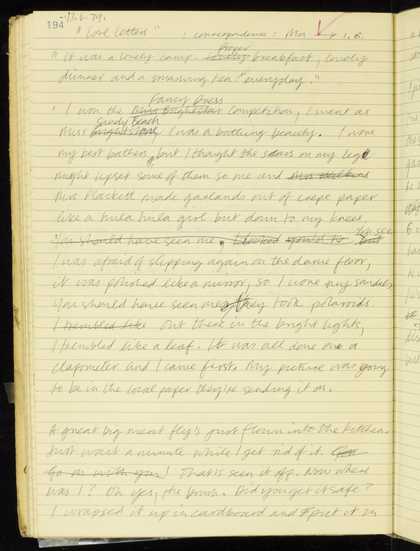 194
17.6.79.
"Love Letters" : correspondence : Mrs + 1.6.
"It was a lovely camp. Proper breakfast, lovely
dinner and a smashing tea "everyday."
"I won the Fancy Dress Competition, I went as
Miss Sandy Beach I was a bathing beauty. I wore
my best bathers, but I thought the scars on my leg
might upset some of them so me and
Mrs Plackett made garlands out of crepe paper
like a hula hula girl but down to my knees
You should have seen me, I looked
I was afraid of slipping again on the dance floor,
it was polished like a mirror, so I wore my sandals,
You should have seen me, they took polaroids
I trembled like Out there in the bright lights,
I trembled like a leaf. It was all done on a
clapometer and I came first. My picture was going
to be in the local paper they're sending it on.
A great big meat fly's just flown into the kitchen.
Just wait a minute while I get rid of it.
Go on with you! That's seen it off. Now where
was I? Oh yes, the brush. Did you get it safe?
I wrapped it up in cardboard and put it in